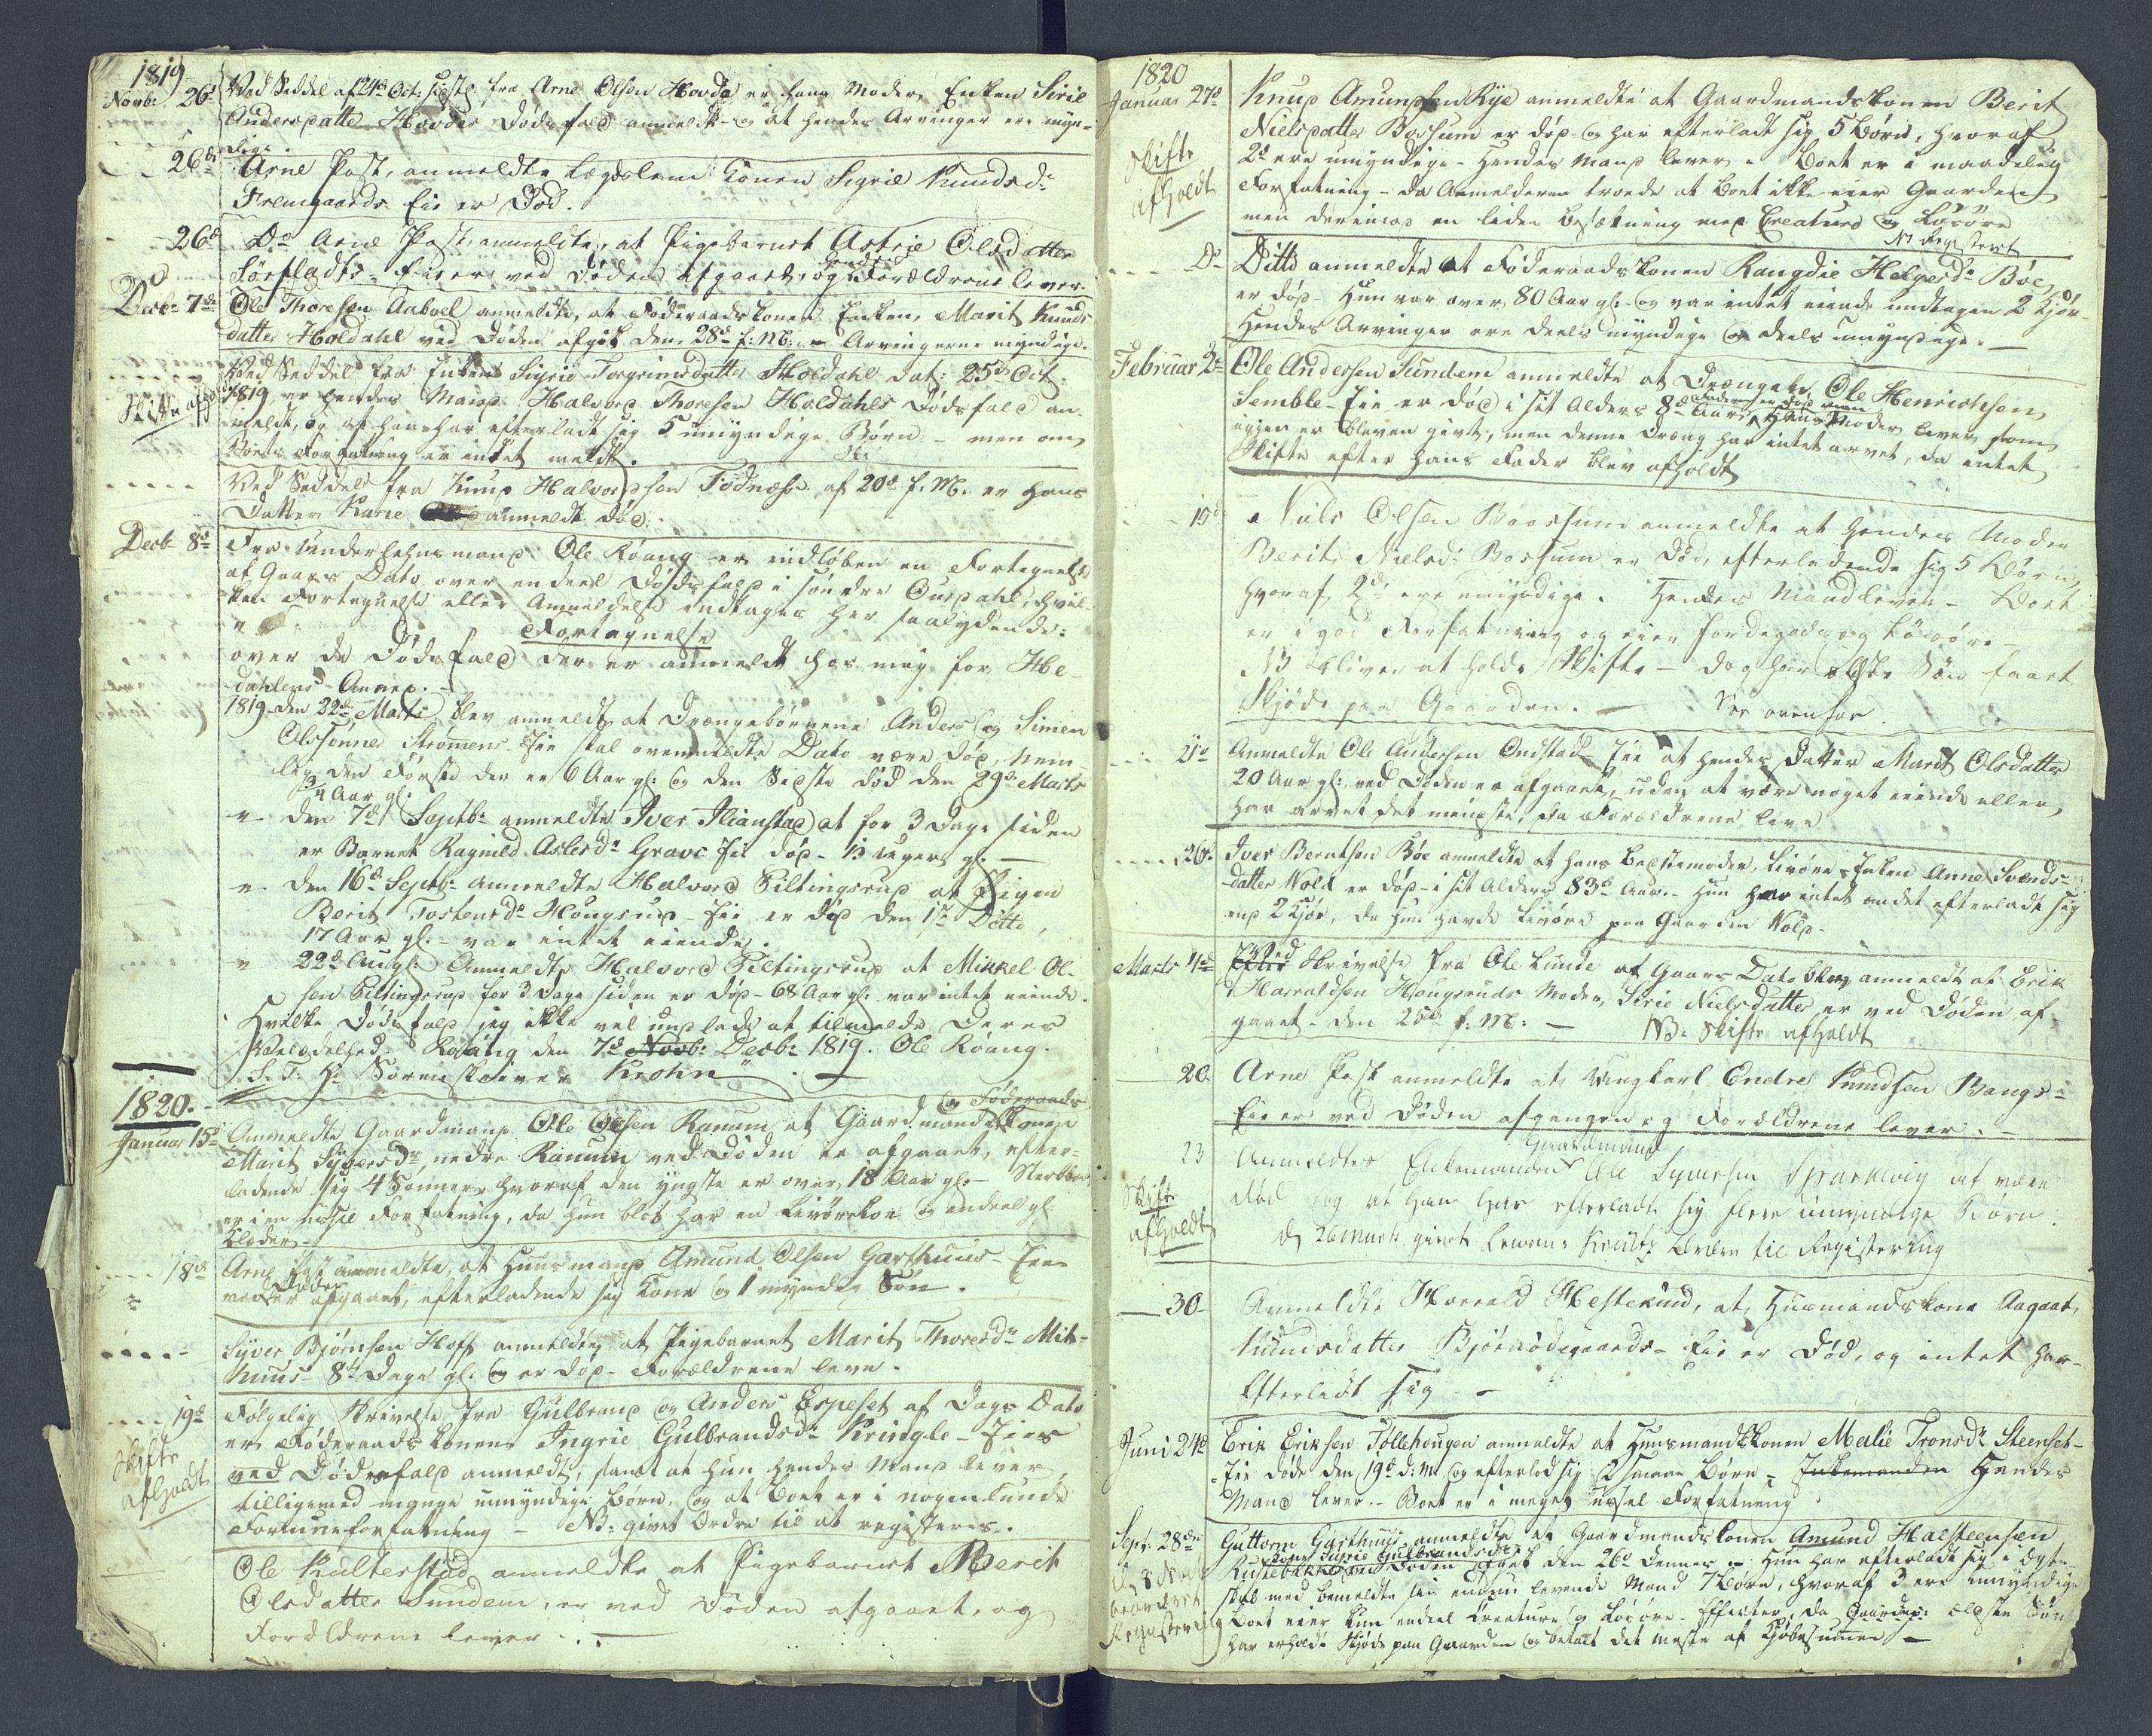 1819
Novbr 26d Ved Seddel af 24d Oct: sidstl: fra Arne Olsen Hovda er hans Moder, Enken Sirie
Andersdatter Hovdas Dødsfald anmeldt - og at hendes Arvinger ere myn-
dige.
26d Arne Post, anmeldte Lægdslem Konen Sigrie Knudsdr
Fremgaards Eie er Død.
26d Do Arne Post, anmeldte, at Pigebarnet Astrie Olsdatter
Sørfladts-Eie er ved Døden afgaaet, og hendes Forældrene lever.
Decbr 7de Ole Thoresen Aaboel anmeldte, at Føderaadskonen Enken, Marit Knuds
datter Holdahl ved Døden afgik den 28d f: M: - Arvingerne myndige.
Skifte afholdt
Ved Seddel fra Enken Sigrie Torgrimsdatter Holdahl dat: 25d Oct:
1819 er hendes Mand Halvord Thoresen Holdahls Dødsfald an-
meldt, og at han har efterladt sig 5 umyndige Børn - men om
Boets Forfatning er intet meldt.
Ved Seddel fra Knud Halvordsen Fødnæss af 20d f. M. er hans
Datter Karie anmeldt død.
Decbr 8d Fra Underlehnsmand Ole Røang er indløben en Fortegnelse
af Gaars Dato over endeel Dødsfald i søndre Ourdahl, hvil-
ken Fortegnelse eller Anmeldelse indtages her saalydende:
Fortegnelse
over de Dødsfald der er anmeldt hos mig for He-
dahlens Annex.
1819 den 22d Marti blev anmeldt at Drengebørnene Anders og Simen
Olssønner Strømens-Eie skal ovenmeldte Dato være død, nem-
lig den Første der er 6 Aar gl: og den Sidste død den 29d Marts
4 Aar gl:
den 7d Septbr anmeldte Iver Ilianstad at for 3 Dage siden
er Barnet Ragnild Aslesdr Gravs Eie død - 13 uger gl: -
den 16d Septbr anmeldte Halvord Piltingsrud at Pigen
Berit Tostensdr Hougsrud-Eie er død den 1ste Ditto,
17 Aar gl: - var intet eiende.
22d Augl: Anmeldte Halvord Piltingsrud at Mikkel Ol-
sen Piltingsrud for 3 Dage siden er død - 68 Aar gl: var intet eiende.
Hvilke Dødsfald jeg ikke vel undlade at tilmelde Deres
Velædelhed. Røang den 7d Novb: Decbr 1819. Ole Røang.
S. T. Hr Sorenskriver Krohn
1820.
Januar 15d Anmeldte Gaardmand Ole Olsen Ranum at Gaardmands og Føderaads konen
Marit Syversdr nedre Ranum ved Døden er afgaaet, efter-
ladende sig 4 Sønner, hvoraf den yngste er over 18 Aar gl: - Sterbboet
er i en ussel Forfatning, da hun blot har en Livørekoe og endeel gl:
Klæder.
18d Arne Post anmeldte, at Huusmand Amund Olsen Garthuus-Eie
ved Døden er afgaaet, efterladende sig Kone og 1 myndig Søn.
Syver Bjørnsen Hoff anmeldte at Pigebarnet Marit Thoresdr Mit-
huus 8te Dage gl: og er død - Forældrene leve.
19d Følgelig Skrivelse fra Gulbrand og Anders Espeset af Dags Dato
er Føderaadskonen Ingrie Gulbrandsdr Kringle-Eies
Skifte afholdt
ved Dødsfald anmeldt, samt at hun hendes Mand lever
tilligemed mange umyndige Børn, og at Boet er i nogenlunde
Formueforfatning - NB: givet Ordre til at registeres.
Ole Kulterstad anmeldte at Pigebarnet Berit
Olsdatter Sundem, er ved Døden afgaaet, og
Forældrene lever. -
1820
Januar 27d Knud Amundsen Rye anmeldte at Gaardmandskonen Berit
Nielsdatter Bossum er død og har efterladt sig 5 Børn, hvoraf
Skifte afholdt
2de ere umyndige - Hendes Mand lever - Boet er i maadelig
Forfatning - da Anmelderen troede at Boet ikke eier Gaarden
men derimod en liden besætning med Creature og Løsøre
NB Registeret
Do Ditto anmeldte at Føderaadskonen Rangdie Helgesdr Bøe,
er død - Hun var over 80 Aar gl: og var intet eiende undtagen 2 Kjør.
Hendes Arvinger ere deels myndige og deels umyndige. -
Februar 2d Ole Andersen Sundem anmeldte at Drengen Ole Henrichsen
Semble-Eie er død i sit Alders 8d Aar, Faderen er død men Hans Moder lever som
igjen er bleven givt, men denne Dreng har intet arvet, da intet
Skifte efter hans Fader blev afholdt
15d Niels Olsen Baassum anmeldte at hendes Moder
Berit Nielsd: Bossum er død, efterladende sig 5 Børn,
hvoraf 2de ere umyndige. Hendes Mand lever - Boet
er i god Forfatning og eier Jordegods og Løsøre -
NB bliver at holde Skifte - dog har ælste Søn faaet
Skjøde paa Gaarden. - See ovenfor.
21d Anmeldte Ole Andersen Ondstad Eie at hendes Datter Marit Olsdatter
20 Aar gl: ved Døden er afgaaet, uden at være noget eiende eller
har arvet det mindste, da Forældrene leve
26d Iver Berntsen Bøe anmeldte at hans Bedstemoder, Livøre Enken Anne Svends-
datter Wold er død i sit Alders 83d Aar. Hun har intet andet efterladt sig
end 2 Kjør, da hun havde Livøre paa Gaarden Wold.
Marts 4d Ved Skrivelse fra Ole Lunde af Gaars Dato blev anmeldt at Erik
Harraldsen Hougsruds Moder, Sirie Nielsdatter er ved Døden af
gaaet - den 25d f: M: - NB: Skifte afholdt
20. Arne Post anmeldte at Ungkarl Endre Knudsen Bangs-
Eie er ved Døden afgangen og Forældrene lever. -
23 Anmeldtes Enkemanden Gaardmand Ole Syversen Sparkvig at være
Skifte afholdt
død og at han har efterladt sig flere umyndige Børn.
d 26 Marts givet Lensm: Kruitz Orden til Registering
30 Anmeldte Harrald Hestekind, at Husmandskone Aagaat
Knudsdatter Bjørnødegaards-Eie er Død, og intet har
Efterladt sig -
Juni 24d Erik Eriksen Tollehougen anmeldte at Huusmandskonen Malie Tronsdr Steenset-
Eie døde den 19d d: M: og efterlod sig 2 smaae Børn - Enkemanden Hendes
Mand lever. - Boet er i meget ussel Forfatning
Septr 28de Guttorm Garthuus anmeldte at Gaardmandskonen Amund Halsteensen
Kultebakkes Kone Sigrie Gulbrandsdr ved Døden afgik den 26d dennes - Hun har efterladt sig i Ægte-
skab med bemeldte sin endnu levende Mand 7 Børn, hvoraf 3 ere umyndige
Boet eier kun endeel Creature og Løsøre-Effecter, da Gaardens ældste Søn
Registering
har erholdt Skjøde paa Gaarden og betalt det meste af Kjøbesummen -